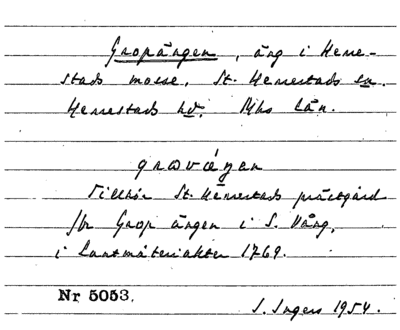 Gropängen, äng i Herre-
stads mosse. St. Herrestads sn.
Herrestads hd. Mhs län.
Tillhör St. Herrestads prästgård
fbr Grop ängen i S. Vång,
i Lantmäteriakten 1769.
Nr 5053.
I. Ingers 1954.